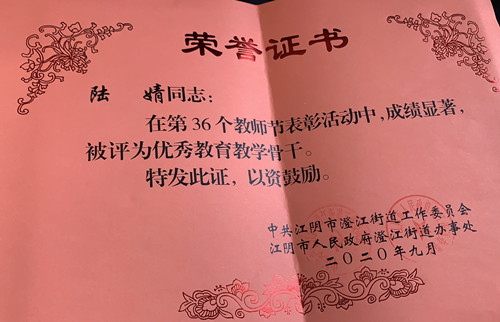 荣誉证书
陆 婧同志：
在第36个教师节表彰活动中，成绩显著，
被评为优秀教育教学骨干。
特发此证，以资鼓励。
中共江阴市澄江街道工作委员会
江阴市人民政府澄江街道办事处
二〇二〇年九月